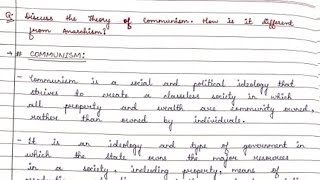 Q: Discuss the Theory of Communism. How is it different
from Anarchism?
→ # COMMUNISM:
- Communism is a social and political ideology that
strives to create a classless society in which
all property and wealth are community owned,
rather than owned by individuals.
- It is an ideology and type of government in
which the State owns the major resources
in a society, including property, means of